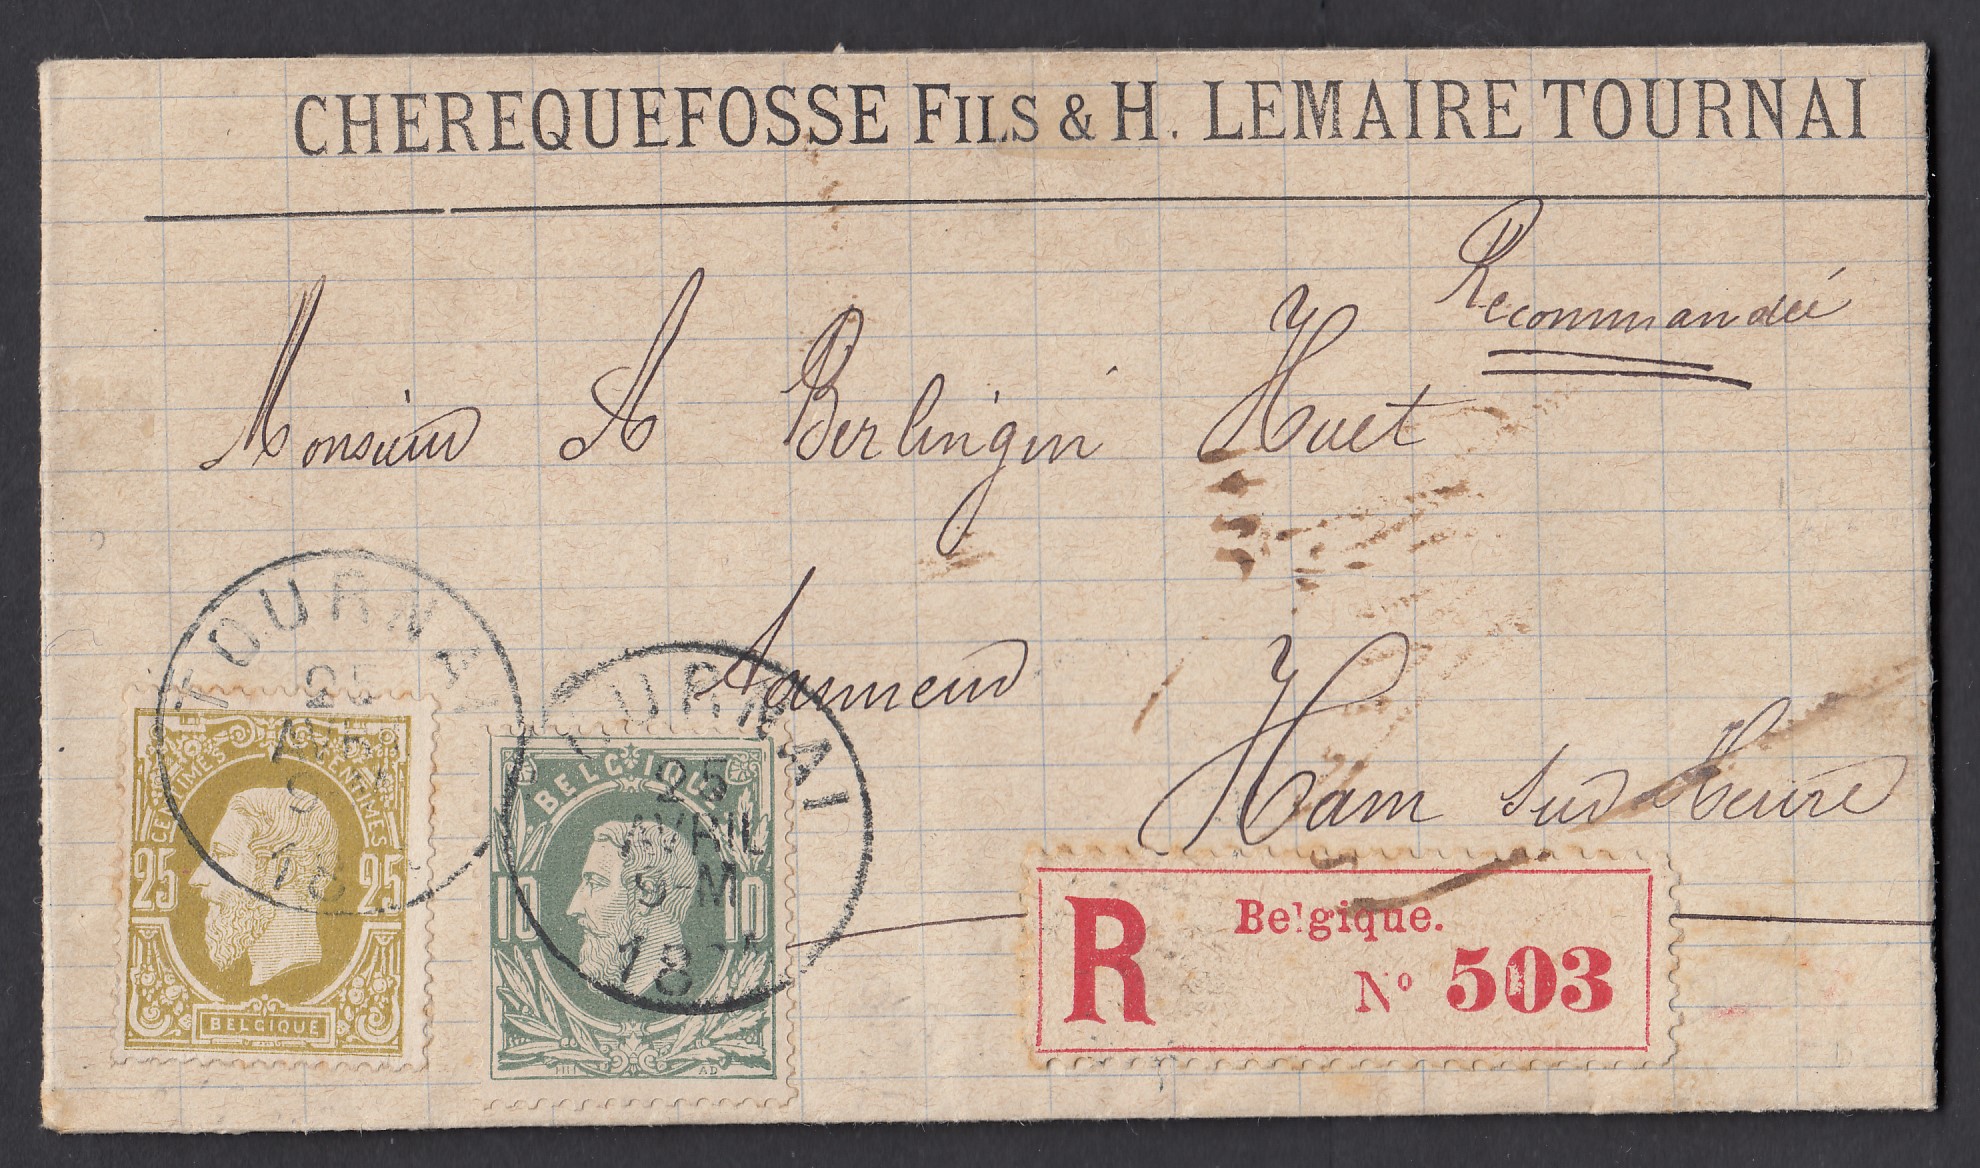 CHEREQUEFOSSE FILS & H. LEMAIRE TOURNAI
Recommandée
Monsieur A Berlingin Huet
Tanneur
Ham sur Heure
TOURNAI
25
AVRIL
9
18
TOURNAI
25
AVRIL
9-M
18
CENTIMES CENTIMES
25 25
BELGIQUE
BELGIQUE
10 10
AD
R Belgique.
Nº 503